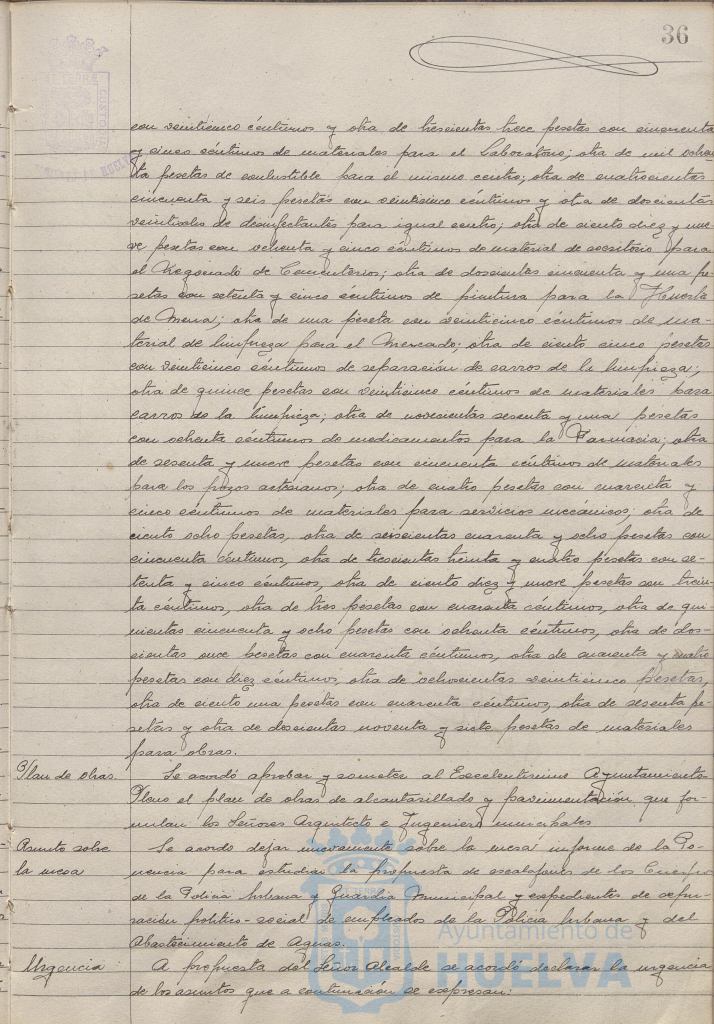 36
con veinticinco céntimos y otra de trescientas trece pesetas con cincuenta
y cinco céntimos de materiales para el Laboratorio; otra de mil ochen
ta pesetas de combustible para el mismo centro; otra de cuatrocientas
cincuenta y seis pesetas con veinticinco céntimos y otra de doscientas
veintiseis de desinfectantes para igual centro; otra de ciento diez y nue
ve pesetas con ochenta y cinco céntimos de material de escritorio para
el Negociado de Cementerios; otra de doscientas cincuenta y una pe
setas con setenta y cinco céntimos de pintura para la Huerta
de Mena; otra de una peseta con veinticinco céntimos de ma-
terial de limpieza para el Mercado; otra de ciento cinco pesetas
con veinticinco céntimos de reparación de carros de la limpieza;
otra de quince pesetas con veinticinco céntimos de materiales para
carros de la limpieza; otra de novecientas sesenta y una pesetas
con ochenta céntimos de medicamentos para la Farmacia; otra
de sesenta y nueve pesetas con cincuenta céntimos de materiales
para los pozos artesianos; otra de cuatro pesetas con cuarenta y
cinco céntimos de materiales para servicios mecánicos; otra de
ciento ocho pesetas, otra de seiscientas cuarenta y ocho pesetas con
cincuenta céntimos, otra de trescientas treinta y cuatro pesetas con se-
tenta y cinco céntimos, otra de ciento diez y nueve pesetas con trein-
ta céntimos, otra de tres pesetas con cuarenta céntimos, otra de qui-
nientas cincuenta y ocho pesetas con ochenta céntimos, otra de dos-
cientas once pesetas con cuarenta céntimos, otra de cuarenta y cuatro
pesetas con diez céntimos, otra de ochocientas veinticinco pesetas,
otra de ciento una pesetas con cuarenta céntimos, otra de sesenta pe-
setas y otra de doscientas noventa y siete pesetas de materiales
para obras.
Plan de obras. Se acordó aprobar y someter al Excelentísimo Ayuntamiento
Pleno el plan de obras de alcantarillado y pavimentación que for-
mulan los Señores Arquitecto e Ingeniero municipales
Asunto sobre Se acordo dejar nuevamente sobre la mesa informe de la Po-
la mesa nencia para estudiar la propuesta de escalafones de los Cuerpos
de la Policia Urbana y Guardia Municipal y expedientes de depu-
ración politico-social de empleados de la Policia Urbana y del
Abastecimiento de Aguas.
Urgencia A propuesta del Señor Alcalde se acordó declarar la urgencia
de los asuntos que a continuación se expresan:
Ayuntamiento de
HUELVA